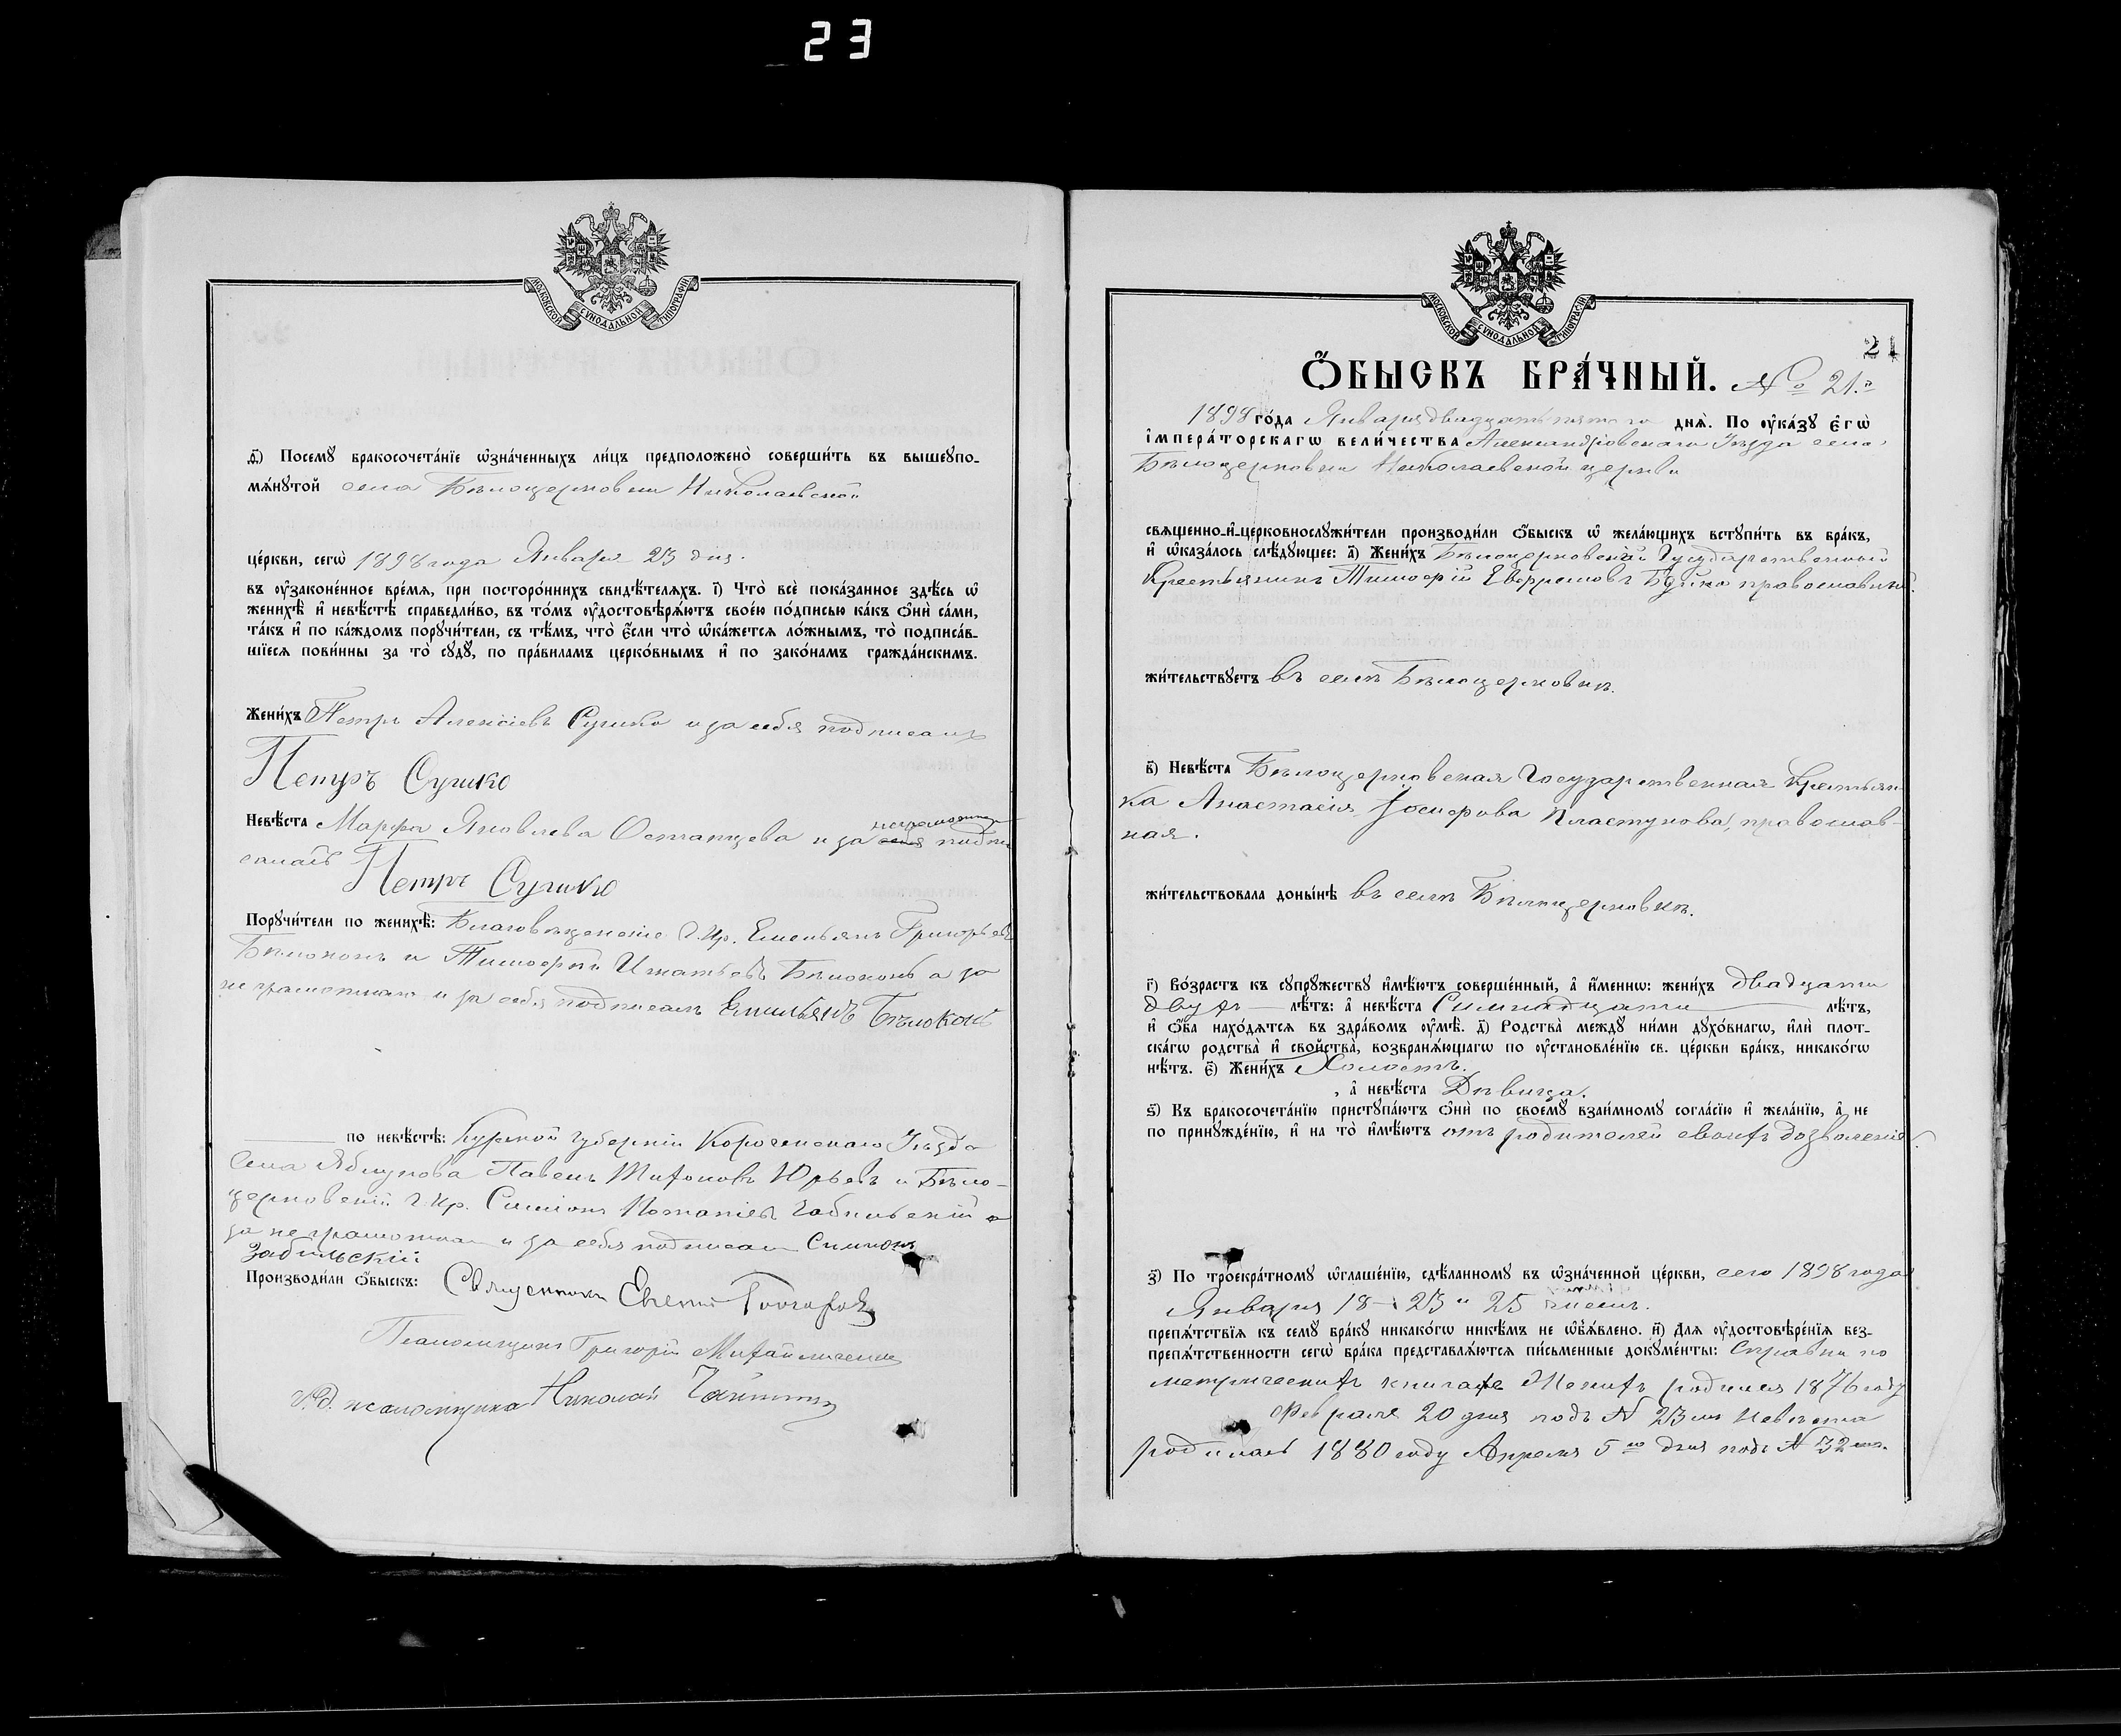 23
МОСКОВСКОЙ СУНОДАЛЬНОЙ ТИПОГРАФІИ
д҃) Посемꙋ бракосочета́нїе ѡ҆зна́ченныхъ ли́цъ предположено̀ соверши́ть въ вышеꙋпо-
мѧ́нꙋтой села Бѣлоцерковки Николаевской
це́ркви, сегѡ̀ 1898 года Января 23 дня.
въ ᲂу҆зако́ненное вре́мѧ, при посторо́ннихъ свидѣ́телѧхъ. і҃) Что̀ всѐ пока́занное здѣ́сь ѡ҆
женихѣ̀ и҆ невѣ́стѣ справедли́во, въ то́мъ ᲂу҆достовѣрѧ́ютъ свое́ю по́дписью ка́къ ѻ҆нѝ са́ми,
та́къ и҆ по ка́ждомъ порꙋчи́тели, съ тѣ́мъ, что̀ є҆́сли что̀ ѡ҆ка́жетсѧ ло́жнымъ, то̀ подписа́в-
шїесѧ пови́нны за то̀ сꙋдꙋ̀, по пра́виламъ церко́внымъ и҆ по зако́намъ гражда́нскимъ.
Жени́хъ Петръ Алексіевъ Сушко и за себя подписалъ
Петръ Сушко
Невѣ́ста Марфа Яковлева Остапцева и за неграмотную подпи
салъ Петръ Сушко
Порꙋчи́тели по женихѣ̀: Благовѣщенскіе Г. Кр. Емельянъ Григорьевъ
Бѣлоконь и Тимофей Игнатьевъ Бѣлоконь а за
не грамотнаго и за себя подписалъ Емильянъ Бѣлоконь
по невѣ́стѣ: Курской губерніи Корочанскаго Уѣзда
Села Яблунова Павелъ Тихоновъ Юрьевъ и Бѣло-
церковскій Г. Кр. Симіонъ Романіевъ Забильскій а
за неграмотнаго и за себя подписалъ Симионъ
Забильскій
Производи́ли ѻ҆́быскъ: Священникъ Евгеній
Псаломщикъ Григорій Михайличенко
И. д. псаломщика Николай
МОСКОВСКОЙ СУНОДАЛЬНОЙ ТИПОГРАФІИ
21
Ѻ҆́БЫСКЪ БРА́ЧНЫЙ. № 21.й
1898 го́да Января двадцать пятаго днѧ̀. По ᲂу҆ка́зꙋ є҆гѡ̀
і҆мпера́торскагѡ вели́чества Александровскаго Уѣзда села
Бѣлоцерковки Николаевской церкви
свѧщенно-и҆-церковнослꙋжи́тели производи́ли ѻ҆́быскъ ѡ҆ жела́ющихъ встꙋпи́ть въ бра́къ,
и҆ ѡ҆каза́лось слѣ́дꙋющее: а҃) Жени́хъ Бѣлоцерковскій Государственный
Крестьянинъ Тимофій Евфремовъ Буйко православный.
жи́тельствꙋетъ въ селѣ Бѣлоцерковкѣ.
в҃) Невѣ́ста Бѣлоцерковская Государственная Крестьян
ка Анастасія Іосифова Пластунова, православ-
ная.
жи́тельствовала доны́нѣ въ селѣ Бѣлоцерковкѣ.
г҃) Во́зрастъ къ сꙋпрꙋ́жествꙋ и҆мѣ́ютъ соверше́нный, а҆ и҆́меннѡ: жени́хъ двадцати
двухъ лѣ́тъ: а҆ невѣ́ста Симнадцати лѣ́тъ,
и҆ ѻ҆́ба нахо́дѧтсѧ въ здра́вомъ ᲂу҆мѣ̀. д҃) Родства̀ междꙋ ни́ми дꙋхо́внагѡ, и҆лѝ плот-
ска́гѡ родства̀ и҆ сво́йства, возбранѧ́ющагѡ по ᲂу҆становле́нїю св. це́ркви бра́къ, никако́гѡ
нѣ́тъ. є҃) Жени́хъ Холостъ.
, а҆ невѣ́ста Дѣвица.
ѕ҃) Къ бракосочета́нїю пристꙋпа́ютъ ѻ҆нѝ по своемꙋ̀ взаи́мномꙋ согла́сїю и҆ жела́нїю, а҆ не
по принꙋжде́нїю, и҆ на то̀ и҆мѣ́ютъ отъ родителей своихъ дозволеніе.
з҃) По троекра́тномꙋ ѡ҆глаше́нїю, сдѣ́ланномꙋ въ ѡ҆зна́ченной це́ркви, сего 1898 года
Января 18- 23 и 25 числъ.
препѧ́тствїѧ къ семꙋ̀ бра́кꙋ никако́гѡ никѣ́мъ не ѡ҆б̾ѧ́влено. и҃) Длѧ ᲂу҆достовѣре́нїѧ без-
препѧ́тственности сегѡ̀ бра́ка представлѧ́ютсѧ пи́сьменные докꙋме́нты: Справки по
метрическихъ книгахъ Женихъ родился 1876 году
Февраля 20 дня подъ № 23мъ Невѣста
родилась 1880 году Апреля 5го дня подъ № 32мъ.